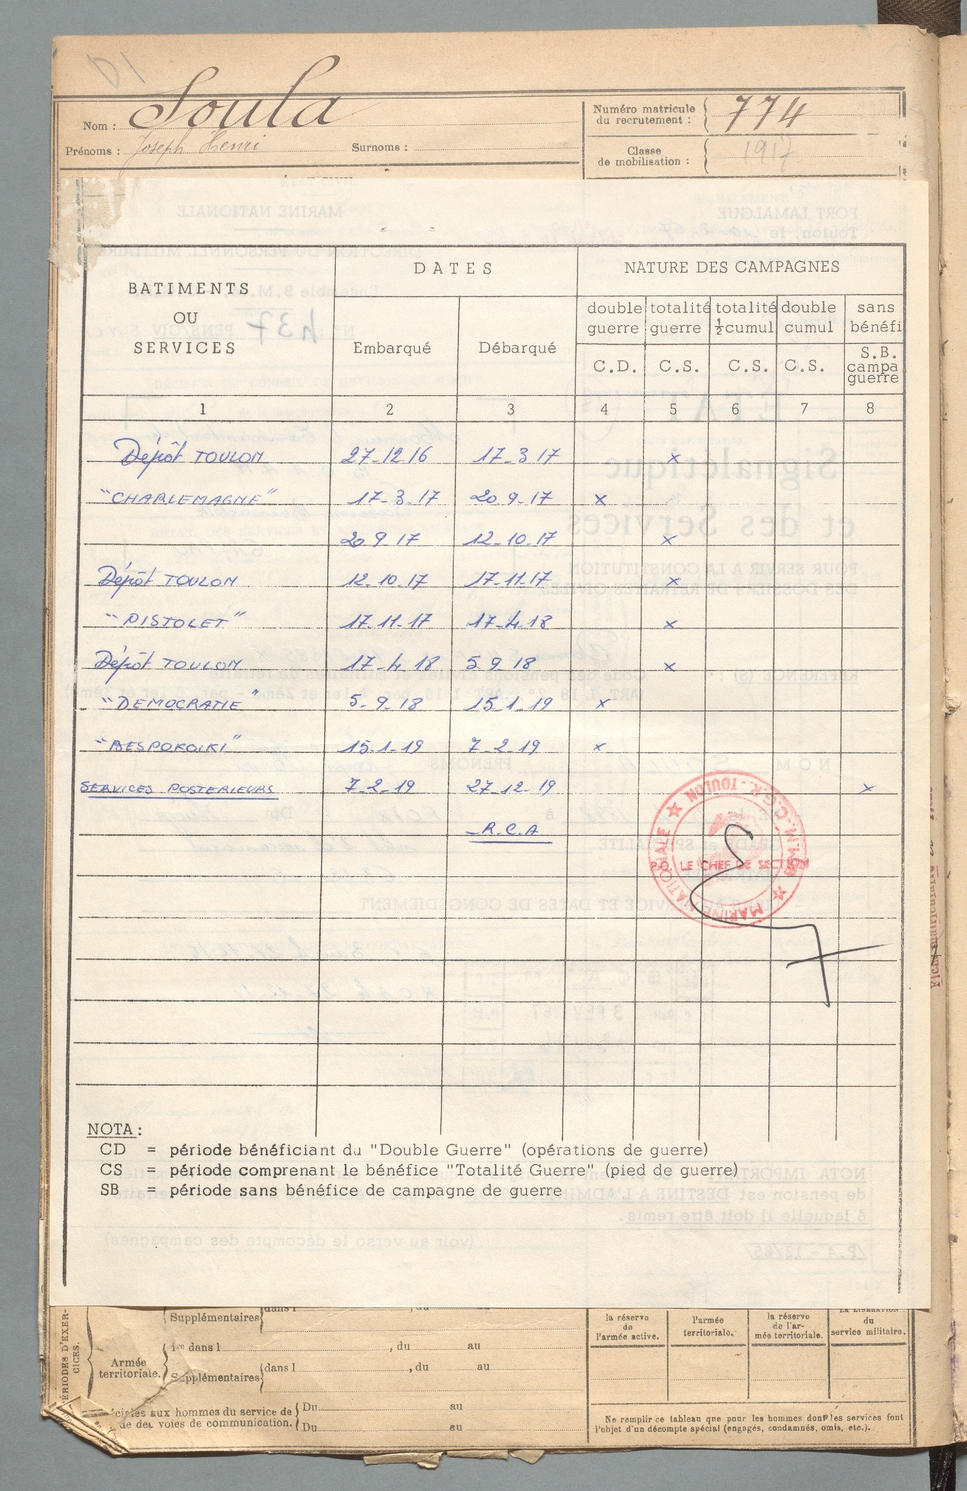 Nom : Soula
Prénoms : Joseph Henri Surnoms :
Numéro matricule
du recrutement : 774
Classe
de mobilisation : 1917
BATIMENTS
OU
SERVICES
DATES
Embarqué Débarqué
NATURE DES CAMPAGNES
double guerre totalité guerre totalité ½ cumul double cumul sans bénéfi
C.D. C.S. C.S. C.S. S.B. campa guerre
1 2 3 4 5 6 7 8
Dépôt TOULON 27-12 16 17-3 17 x
"CHARLEMAGNE" 17-3 17 20 9-17 x
20 9 17 12-10.17 x
Dépôt TOULON 12.10.17 17.11.17 x
"PISTOLET" 17.11.17 17-4.18 x
Dépôt TOULON 17-4.18 5 9 18 x
"DEMOCRATIE" 5-9.18 15.1-19 x
"BESPOKOIKI" 15.1-19 7-2-19 x
SERVICES POSTERIEURS 7-2.19 27-12-19 x
R.C.A
MARINE NATIONALE
P.O. LE CHEF DE SECTION
NOTA :
CD = période bénéficiant du "Double Guerre" (opérations de guerre)
CS = période comprenant le bénéfice "Totalité Guerre" (pied de guerre)
SB = période sans bénéfice de campagne de guerre
PÉRIODES D'EXERCICES.
Supplémentaires dans l , du au
Armée
territoriale.
1re dans l , du au
Supplémentaires dans l , du au
aux hommes du service de
de des voies de communication.
Du au
Du au
la réserve
de
l'armée active.
l'armée
territoriale.
la réserve
de l'ar-
mée territoriale.
la libération
du
service militaire.
Ne remplir ce tableau que pour les hommes dont les services font
l'objet d'un décompte spécial (engagés, condamnés, omis, etc.).